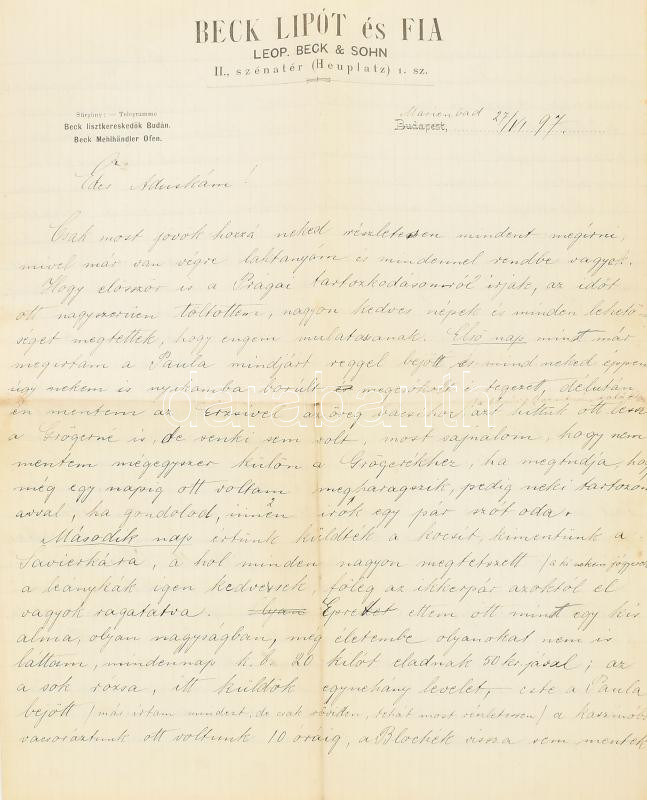 BECK LIPÓT és FIA
LEOP. BECK & SOHN
II., szénatér (Heuplatz) 1. sz.
Sürgöny: — Telegramme
Beck lisztkereskedők Budán.
Beck Mehlhändler Ofen.
Marienbad
Budapest, 27/VI 97.
Édes Aduskám!
Csak most jovok hozzá neked részletessen mindent megirni,
mivel már van végre laktanyám és mindennel rendbe vagyok.
Hogy eloszzor is a Prágai tartozkodásomról irják, az időt
ott nagyszerüen töltöttem, nagyon kedves népek és minden lehető-
séget megtettek, hogy engem mulatossanak. Első nap mint már
megirtam a Paula mindjárt reggel bejött és mind neked éppen
úgy nekem is nyakamba borult megcsókolt téged, délután
én mentem az Erzsivel az öreg vacsihor azt hittük ott lessz
a Grögerné is, de senki sem volt, most sajnalom, hogy nem
mentem mégegyszer külön a Grögerékhez, ha megtudja, hogy
még egy napig ott voltam megharagszik, pedig neki tartozom
avval, ha gondolod, innen irok egy pár szót oda.
Második nap értünk küldték a kocsit, kimentünk a
a hol minden nagyon megtetszett
a leánykák igen kedvessek, főleg az ikkerpár azoktól el
vagyok ragadtatva. Epret ettem ott mint egy kis
alma, olyan nagyságban, még életembe olyanokat nem is
láttam, mindennap k. b. 20 kilót eladnak 50 krjával; az
a sok rozsa, itt küldök egynehány levelet, — este a Paula
bejött (más irtam mindent, de csak röviden, tehát most részletessen) a kaszinóba
vacsoráztunk ott voltunk 10 oráig, a Blochék vissza sem mentek
darabanth